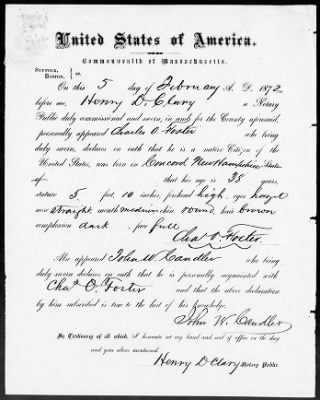 United States of America.
Commonwealth of Massachusetts.
SUFFOLK,
BOSTON,
On this 5 day of February A. D. 1872
before me, Henry D. Clary a Notary
Public duly commissioned and sworn, in and for the County aforesaid,
personally appeared Charles O. Foster who being
duly sworn, declares on oath that he is a native Citizen of the
United States, was born in Concord New Hampshire State
of that his age is 38 years,
stature 5 feet, 10 inches, forehead high, eyes hazel
nose straight, mouth medium chin round, hair brown
complexion dark face full
Chas O. Foster.
Also appeared John W. Candler who being
duly sworn declares on oath that he is personally acquainted with
Chas O. Foster and that the above declaration
by him subscribed is true to the best of his knowledge.
John W. Candler
In Testimony of all which, I hereunto set my hand and seal of office on the day
and year above mentioned.
Henry D Clary Notary Public.